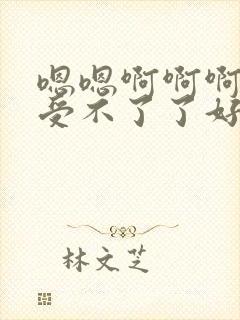 嗯嗯啊啊啊
受不了了好
林文芝